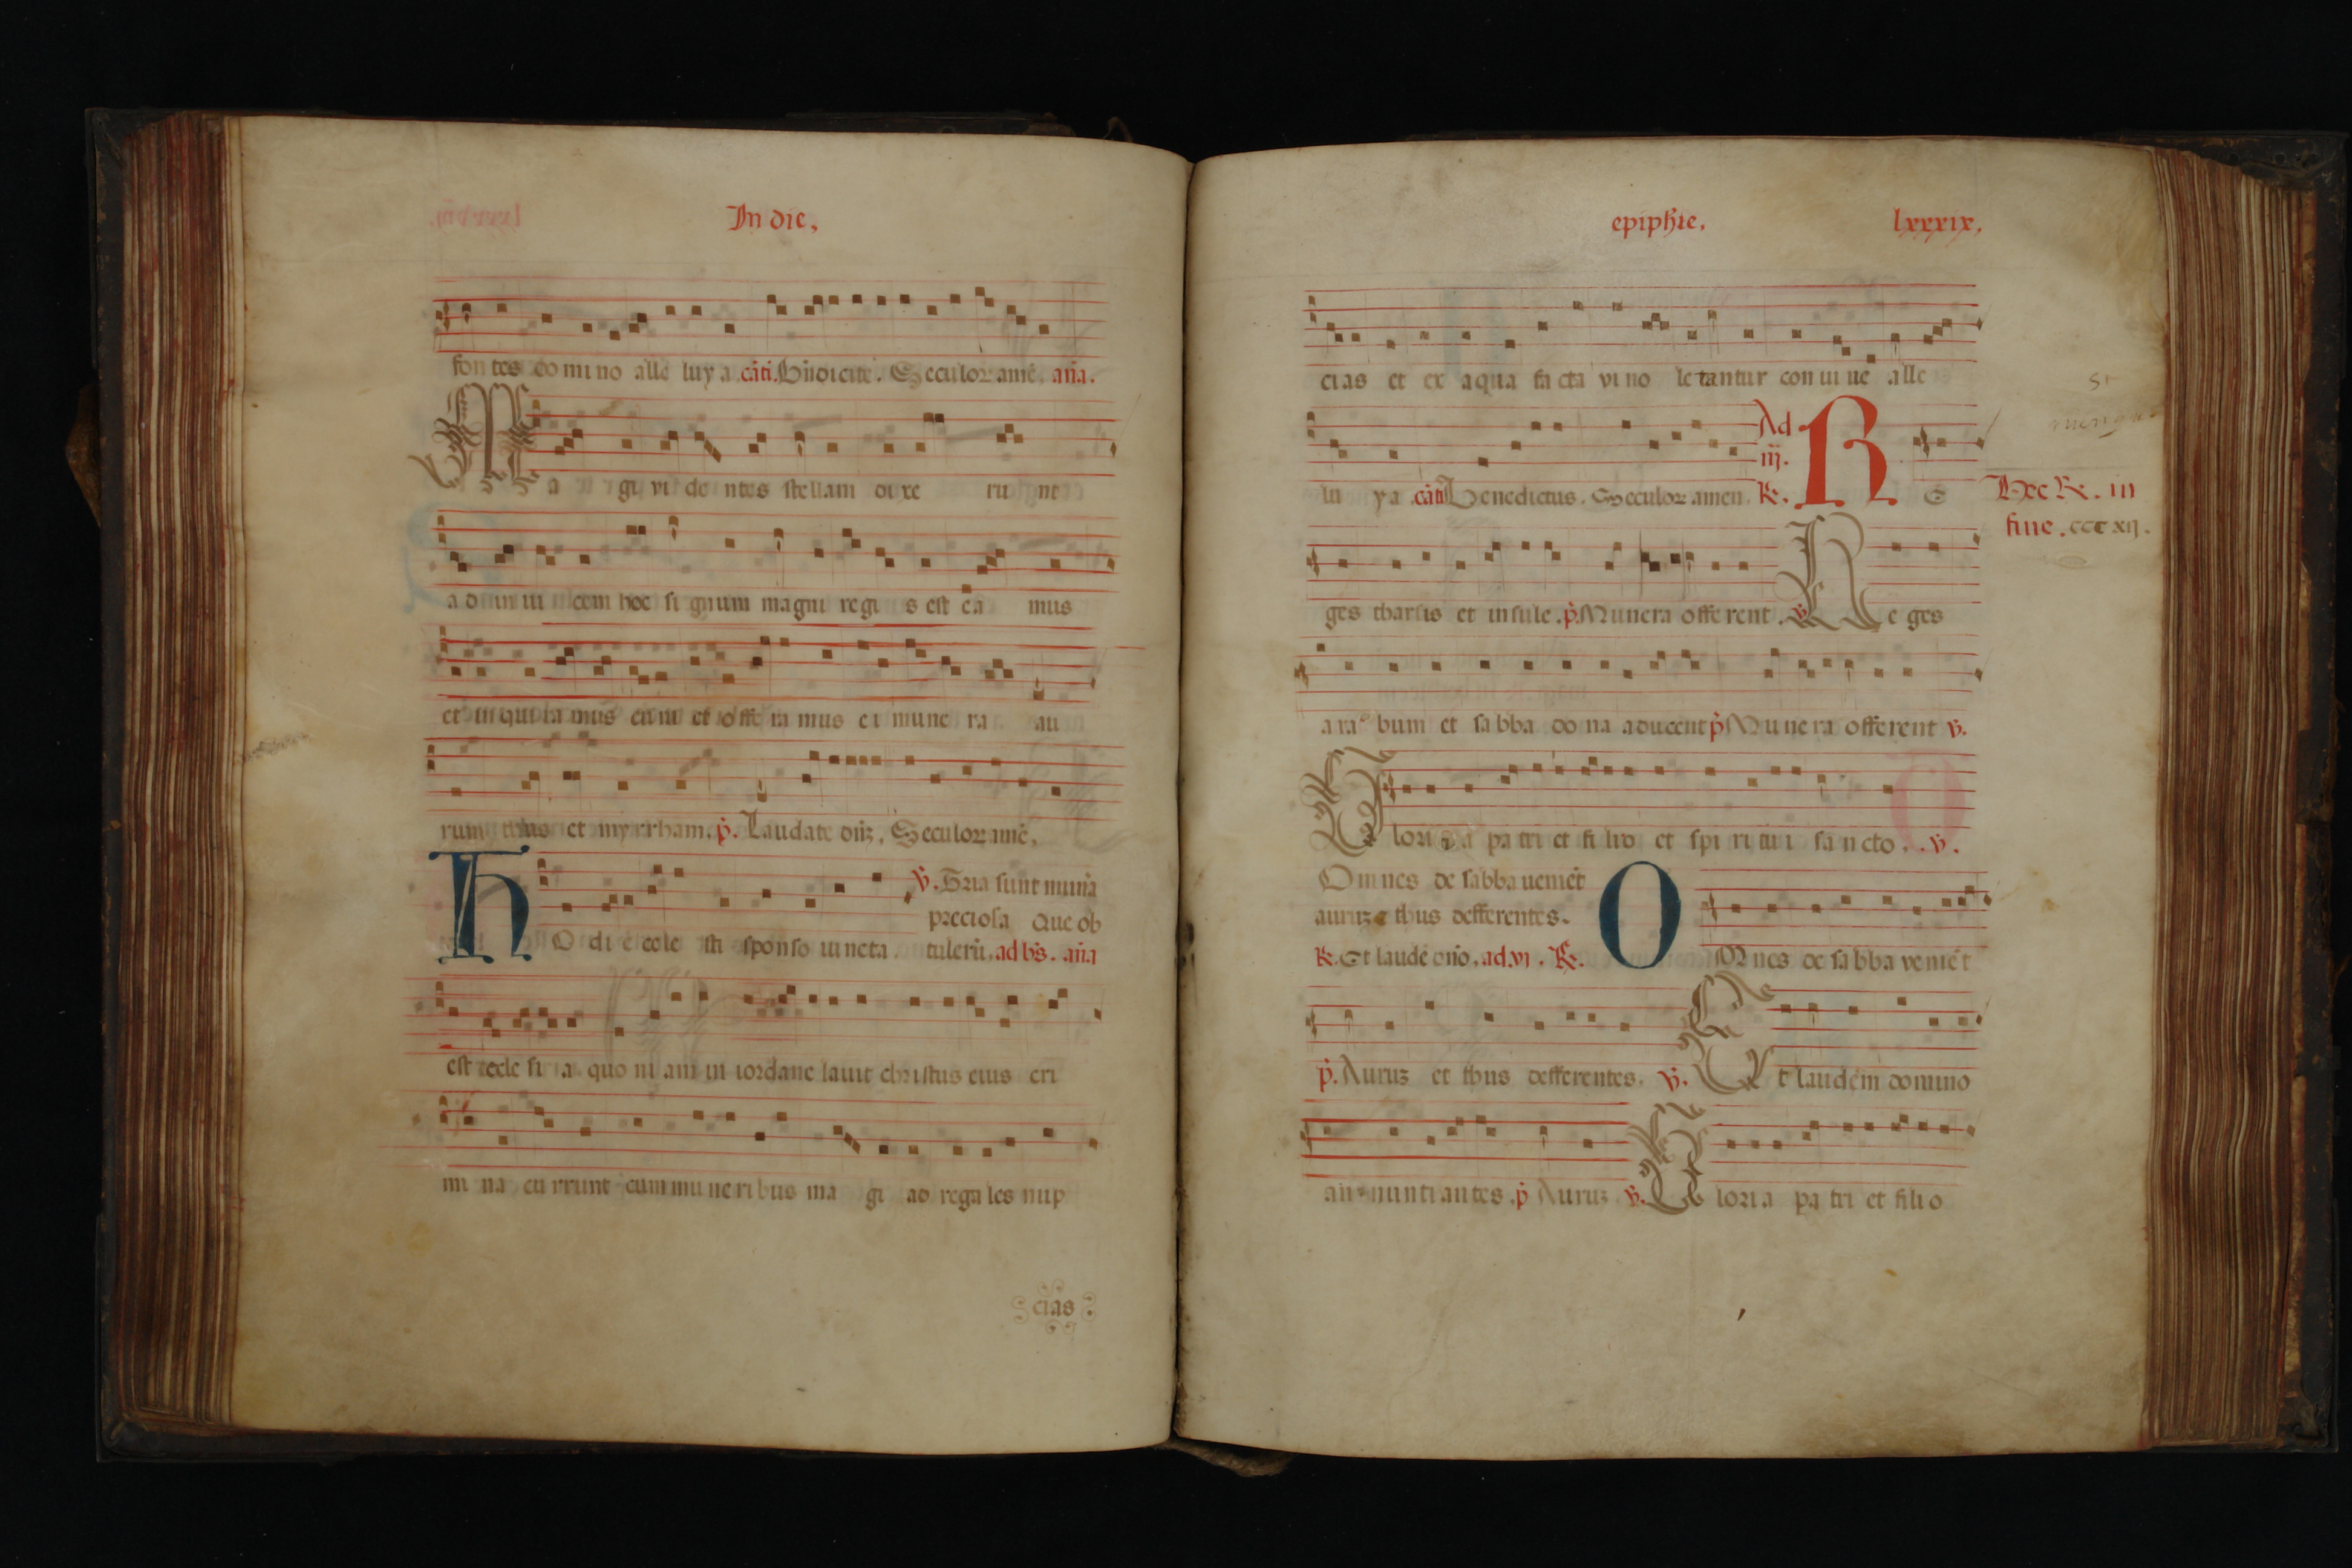 In die,
fontes domino alleluya cãti. Bñdicite. Seculor amẽ, aña.
Magi videntes stellam dixerunt
adinuicem hoc signum magni regis est eamus
et inquiramus eum et offeramus ei munera au
rum thus et myrrham. p̃. Laudate dñz. Seculor amẽ.
v̄. Tria sunt munã
preciosa Que ob
Hodie celesti sponso iuncta tulerũ. ad bs̃. aña
est ecclesia quoniam in iordane lauit christus eius cri
mina currunt cum muneribus magi ad regales nup
cias
epiphĩe, lxxxix,
cias et ex aqua facta vino letantur conuiue alle
Ad
iij.
luya cãti Benedictus. Seculor amen. R. RE
Hec R. in
fine. cccxij.
ges tharsis et insule. p̃. Munera offerent. v̄. Reges
arabum et sabba dona aducent p̃ Munera offerent v̄.
Gloria patri et filio et spiritui sancto. v̄.
Omnes de sabba ueniẽt
auruz et thus defferentes.
R. Et laudẽ dño. ad.vj. R. OMnes de sabba veniẽt
p̃. Auruz et thus defferentes. v̄. Et laudem domino
annuntiantes. p̃ Auruz v̄. Gloria patri et filio